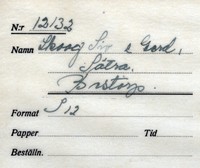 N:r 12132
Namn Skoog Siv & Gerd,
Sätra.
Format S 12
Papper Tid
Beställn.